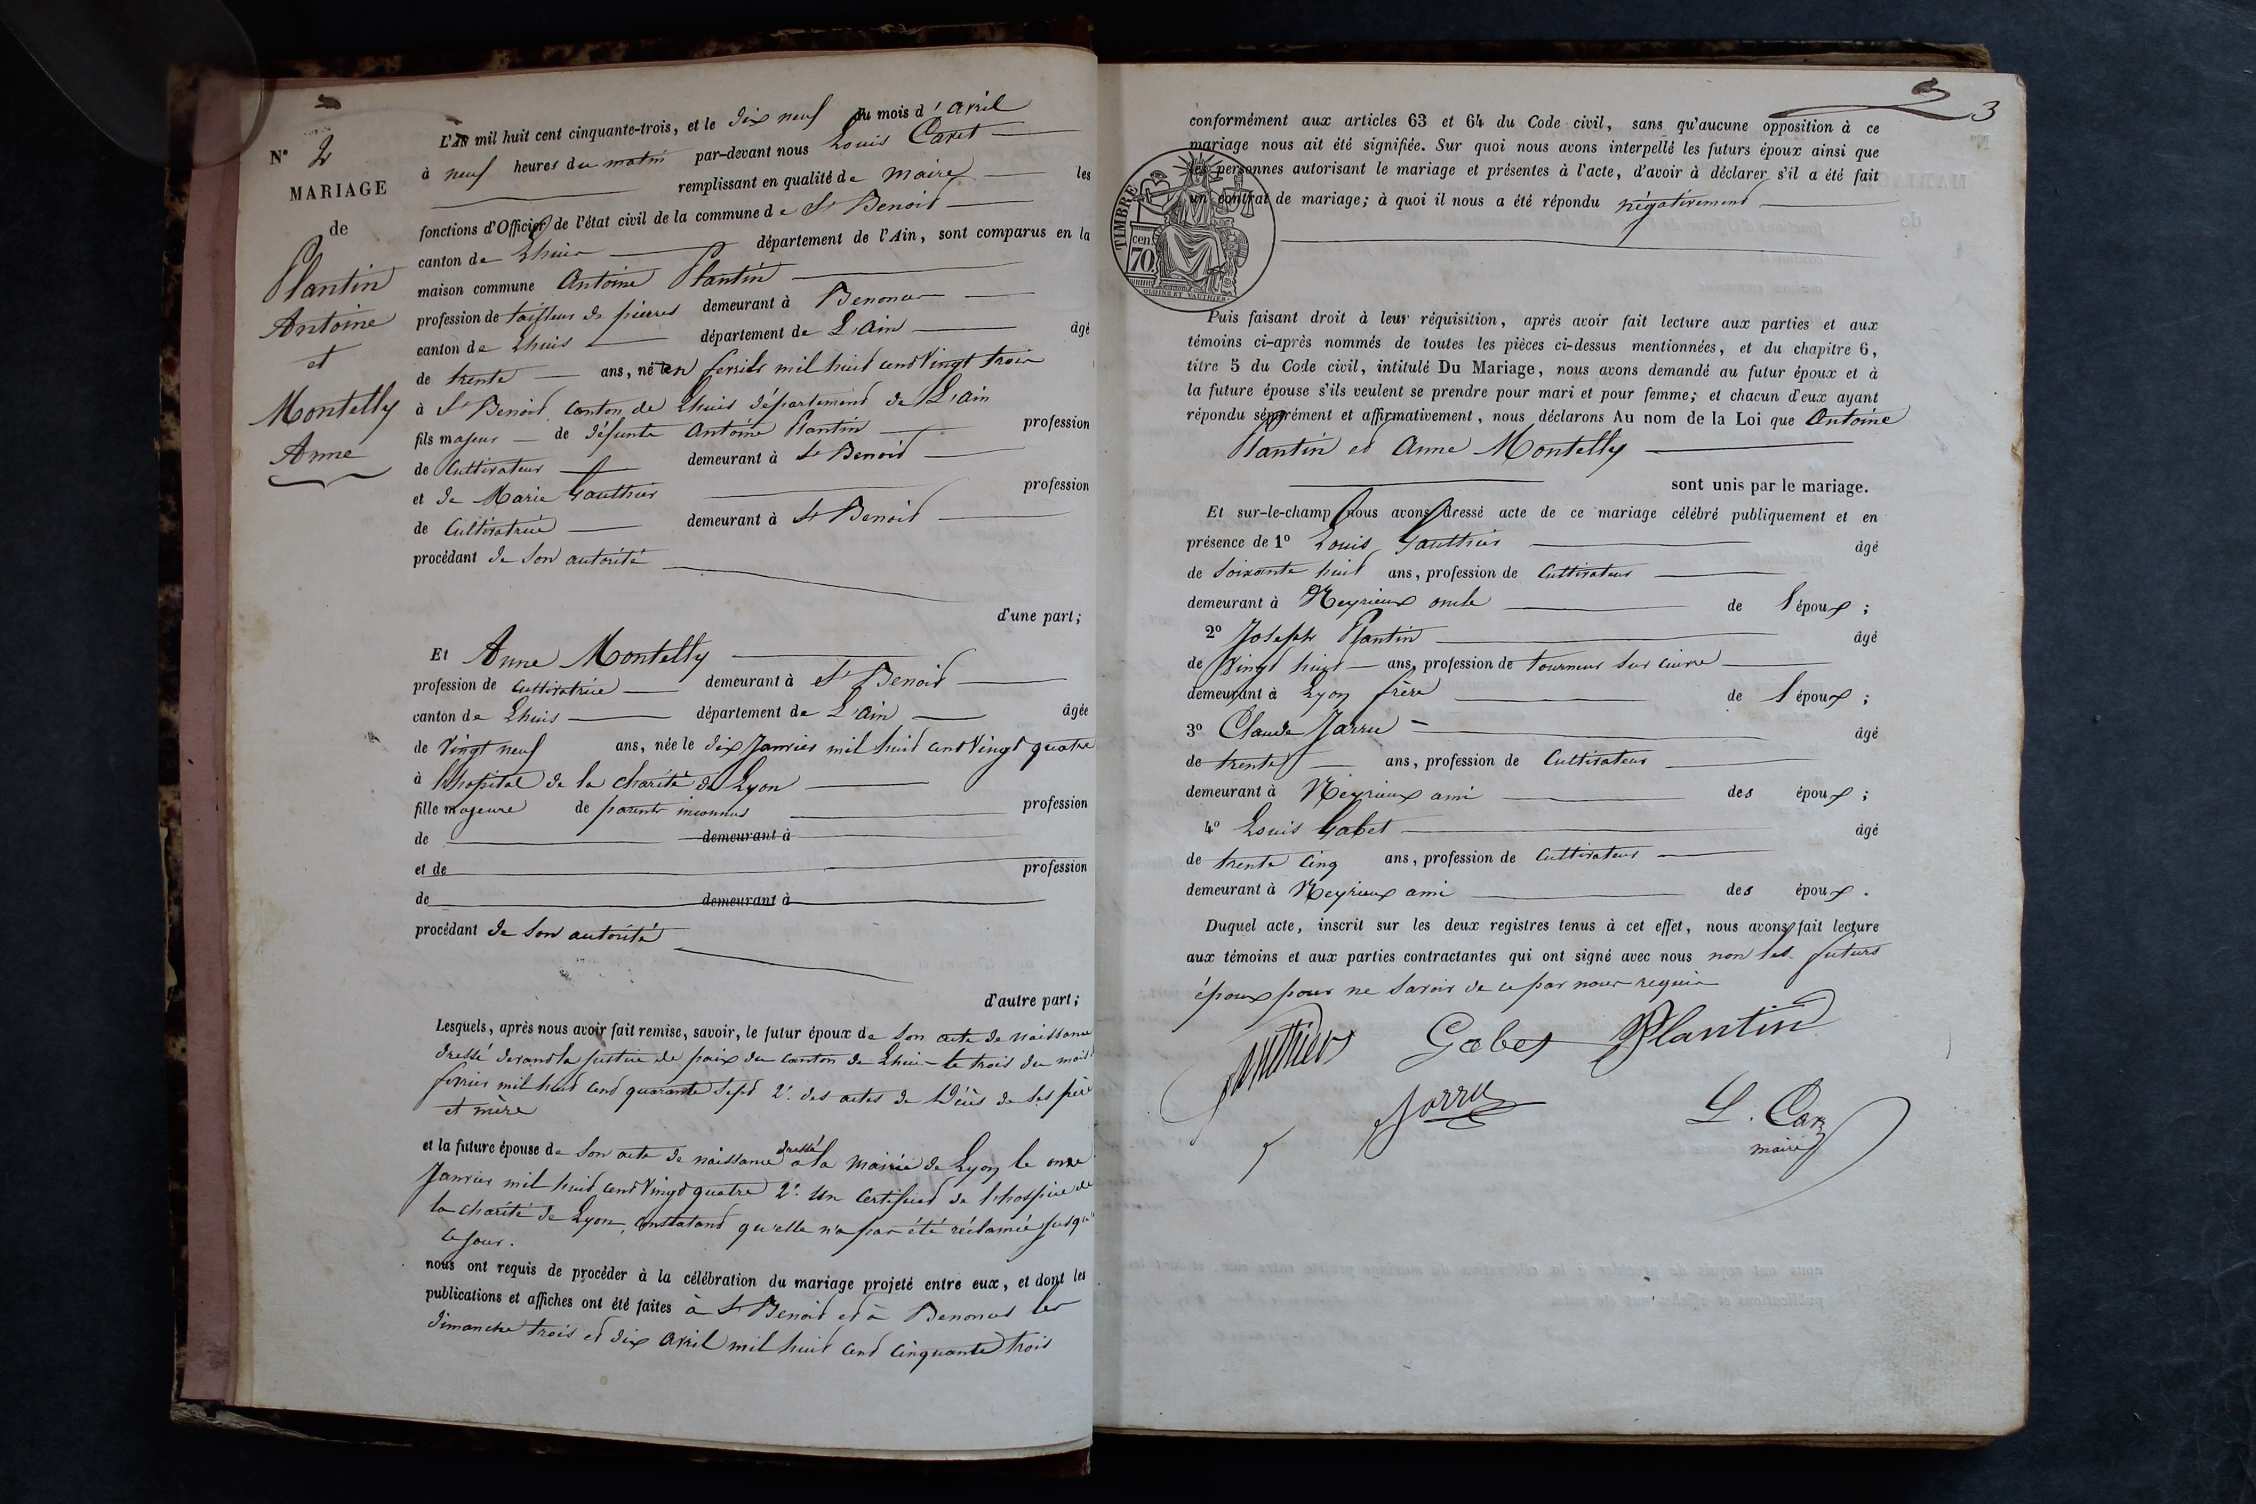 N° 2
MARIAGE
de
Plantin
Antoine
et
Montelly
Anne
L'AN mil huit cent cinquante-trois, et le dix neuf du mois d'avril
à neuf heures du matin par-devant nous Louis Caret
remplissant en qualité de maire les
fonctions d'Officier de l'état civil de la commune de St Benoit
canton de Lhuis département de l'Ain, sont comparus en la
maison commune Antoine Plantin
profession de tailleur de pierres demeurant à Benonces
canton de Lhuis département de L'ain âgé
de trente ans, né en fevrier mil huit cent vingt trois
à St Benoit canton de Lhuis département de L'ain
fils majeur de défunts Antoine Plantin profession
de Cultivateur demeurant à St Benoit
et de Marie Gauthier profession
de Cultivatrice demeurant à St Benoit
procédant de son autorité
d'une part;
Et Anne Montelly
profession de Cultivatrice demeurant à St Benoit
canton de Lhuis département de L'ain âgée
de vingt neuf ans, née le dix Janvier mil huit cent vingt quatre
à l'hopital de la charité de Lyon
fille majeure de parents inconnus profession
de demeurant à
et de profession
de demeurant à
procédant de son autorité
d'autre part;
Lesquels, après nous avoir fait remise, savoir, le futur époux de son acte de naissance
dressé devant la justice de paix du canton de Lhuis le trois du mois
fevrier mil huit cent quarante sept 2° des actes de décès de ses père
et mère
et la future épouse de son acte de naissance dressé à la mairie de Lyon le onze
Janvier mil huit cent vingt quatre 2° un certificat de l'hospice de
la charité de Lyon, constatant qu'elle n'a pas été réclamée jusqu'à
ce jour.
nous ont requis de procéder à la célébration du mariage projeté entre eux, et dont les
publications et affiches ont été faites à St Benoit et à Benonces les
dimanche trois et dix avril mil huit cent cinquante trois
3
conformément aux articles 63 et 64 du Code civil, sans qu'aucune opposition à ce
mariage nous ait été signifiée. Sur quoi nous avons interpellé les futurs époux ainsi que
les personnes autorisant le mariage et présentes à l'acte, d'avoir à déclarer s'il a été fait
un contrat de mariage; à quoi il nous a été répondu négativement
TIMBRE
70 cen
Puis faisant droit à leur réquisition, après avoir fait lecture aux parties et aux
témoins ci-après nommés de toutes les pièces ci-dessus mentionnées, et du chapitre 6,
titre 5 du Code civil, intitulé Du Mariage, nous avons demandé au futur époux et à
la future épouse s'ils veulent se prendre pour mari et pour femme; et chacun d'eux ayant
répondu séparément et affirmativement, nous déclarons Au nom de la Loi que Antoine
Plantin et Anne Montelly
sont unis par le mariage.
Et sur-le-champ nous avons dressé acte de ce mariage célébré publiquement et en
présence de 1° Louis Gauthier âgé
de soixante huit ans, profession de Cultivateur
demeurant à Neyrieux oncle de l'époux;
2° Joseph Plantin âgé
de vingt huit ans, profession de tourneur sur cuivre
demeurant à Lyon frère de l'époux;
3° Claude Jarru âgé
de trente ans, profession de Cultivateur
demeurant à Neyrieux ami des époux;
4° Louis Gabet âgé
de trente cinq ans, profession de Cultivateur
demeurant à Neyrieux ami des époux.
Duquel acte, inscrit sur les deux registres tenus à cet effet, nous avons fait lecture
aux témoins et aux parties contractantes qui ont signé avec nous non les futurs
époux pour ne savoir de ce par nous requis
Gauthier Gabet Plantin
Jarru
L. Caret
maire